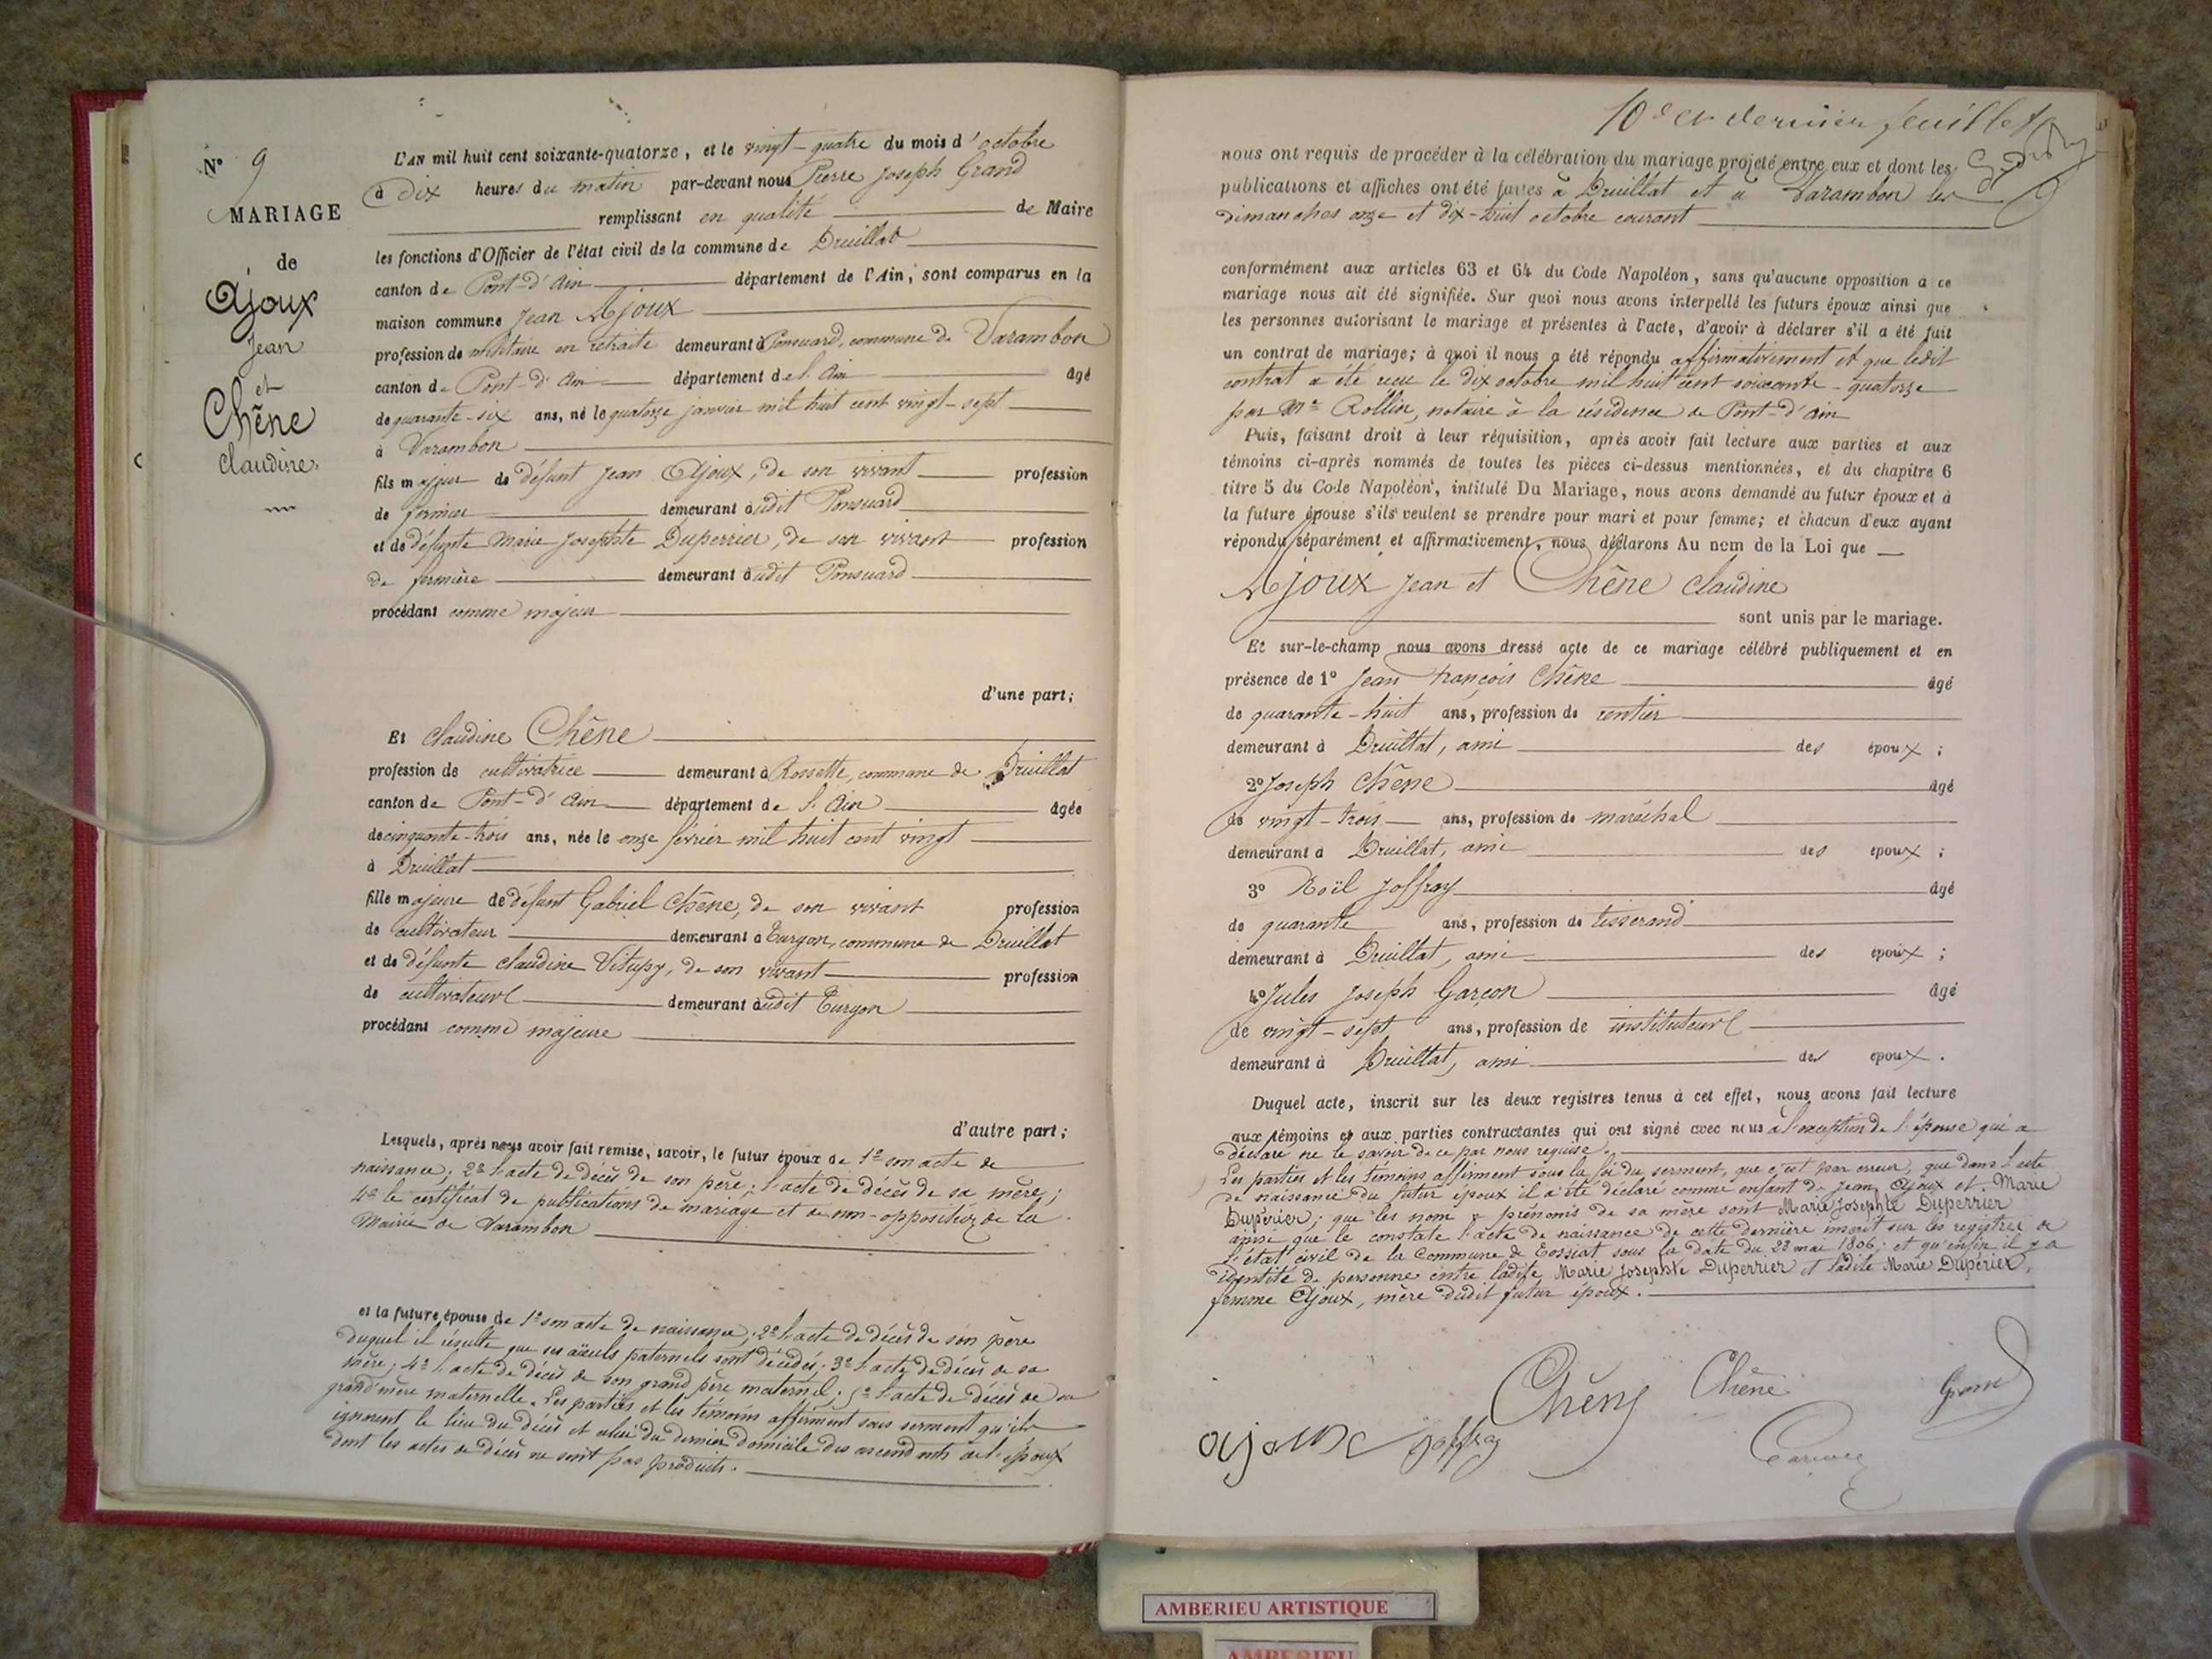 N° 9
MARIAGE
de
Ajoux
Jean
et
Chêne
Claudine
L'AN mil huit cent soixante-quatorze, et le vingt-quatre du mois d'octobre
à dix heures du matin par-devant nous Pierre Joseph Grand
remplissant en qualité de Maire
les fonctions d'Officier de l'état civil de la commune de Druillat
canton de Pont-d'Ain département de l'Ain, sont comparus en la
maison commune Jean Ajoux
profession de militaire en retraite demeurant à Ponsuard, commune de Varambon
canton de Pont-d'Ain département de l'Ain âgé
de quarante-six ans, né le quatorze janvier mil huit cent vingt-sept
à Varambon
fils majeur de défunt Jean Ajoux, de son vivant profession
de fermier demeurant audit Ponsuard
et de défunte Marie Josephte Duperrier, de son vivant profession
de fermière demeurant audit Ponsuard
procédant comme majeur
d'une part;
Et Claudine Chêne
profession de cultivatrice demeurant à Rossette, commune de Druillat
canton de Pont-d'Ain département de l'Ain âgée
de cinquante-trois ans, née le onze février mil huit cent vingt
à Druillat
fille majeure de défunt Gabriel Chêne, de son vivant profession
de cultivateur demeurant à Turgon, commune de Druillat
et de défunte Claudine Vitupy, de son vivant profession
de cultivateur demeurant audit Turgon
procédant comme majeure
d'autre part;
Lesquels, après nous avoir fait remise, savoir, le futur époux de 1° son acte de
naissance; 2° l'acte de décès de son père; l'acte de décès de sa mère;
4° le certificat de publications de mariage et de non-opposition de la
Mairie de Varambon
et la future épouse de 1° son acte de naissance; 2° l'acte de décès de son père
duquel il résulte que ses aïeuls paternels sont décédés; 3° l'acte de décès de sa
mère; 4° l'acte de décès de son grand père maternel; 5° l'acte de décès de sa
grand'mère maternelle. Les parties et les témoins affirment sous serment qu'ils
ignorent le lieu du décès et celui du dernier domicile des ascendants de l'époux
dont les actes de décès ne sont pas produits.
10e et dernier feuillet
nous ont requis de procéder à la célébration du mariage projeté entre eux et dont les
publications et affiches ont été faites à Druillat et à Varambon les
dimanches onze et dix-huit octobre courant
conformément aux articles 63 et 64 du Code Napoléon, sans qu'aucune opposition à ce
mariage nous ait été signifiée. Sur quoi nous avons interpellé les futurs époux ainsi que
les personnes autorisant le mariage et présentes à l'acte, d'avoir à déclarer s'il a été fait
un contrat de mariage; à quoi il nous a été répondu affirmativement et que ledit
contrat a été reçu le dix octobre mil huit cent soixante-quatorze
par Me Rollin, notaire à la résidence de Pont-d'Ain
Puis, faisant droit à leur réquisition, après avoir fait lecture aux parties et aux
témoins ci-après nommés de toutes les pièces ci-dessus mentionnées, et du chapitre 6
titre 5 du Code Napoléon, intitulé Du Mariage, nous avons demandé au futur époux et à
la future épouse s'ils veulent se prendre pour mari et pour femme; et chacun d'eux ayant
répondu séparément et affirmativement, nous déclarons Au nom de la Loi que
Ajoux Jean et Chêne Claudine
sont unis par le mariage.
Et sur-le-champ nous avons dressé acte de ce mariage célébré publiquement et en
présence de 1° Jean François Chêne âgé
de quarante-huit ans, profession de rentier
demeurant à Druillat, ami des époux;
2° Joseph Chêne âgé
de vingt-trois ans, profession de maréchal
demeurant à Druillat, ami des époux;
3° Noël Joffray âgé
de quarante ans, profession de tisserand
demeurant à Druillat, ami des époux;
4° Jules Joseph Garçon âgé
de vingt-sept ans, profession de instituteur
demeurant à Druillat, ami des époux.
Duquel acte, inscrit sur les deux registres tenus à cet effet, nous avons fait lecture
aux témoins et aux parties contractantes qui ont signé avec nous à l'exception de l'épouse qui a
déclaré ne le savoir de ce par nous requise.
Les parties et les témoins affirment sous la foi du serment, que c'est par erreur, que dans l'acte
de naissance du futur époux il a été déclaré comme enfant de Jean Ajoux et Marie
Dupérier; que les nom et prénoms de sa mère sont Marie Josephte Duperrier
ainsi que le constate l'acte de naissance de cette dernière inscrit sur les registres de
l'état civil de la Commune de Tossiat sous la date du 23 mai 1806; et qu'enfin il y a
identité de personne entre ladite Marie Josephte Duperrier et ladite Marie Dupérier,
femme Ajoux, mère dudit futur époux.
Chêne Chêne Grand
ajoux Joffray Garçon
AMBERIEU ARTISTIQUE
AMBERIEU